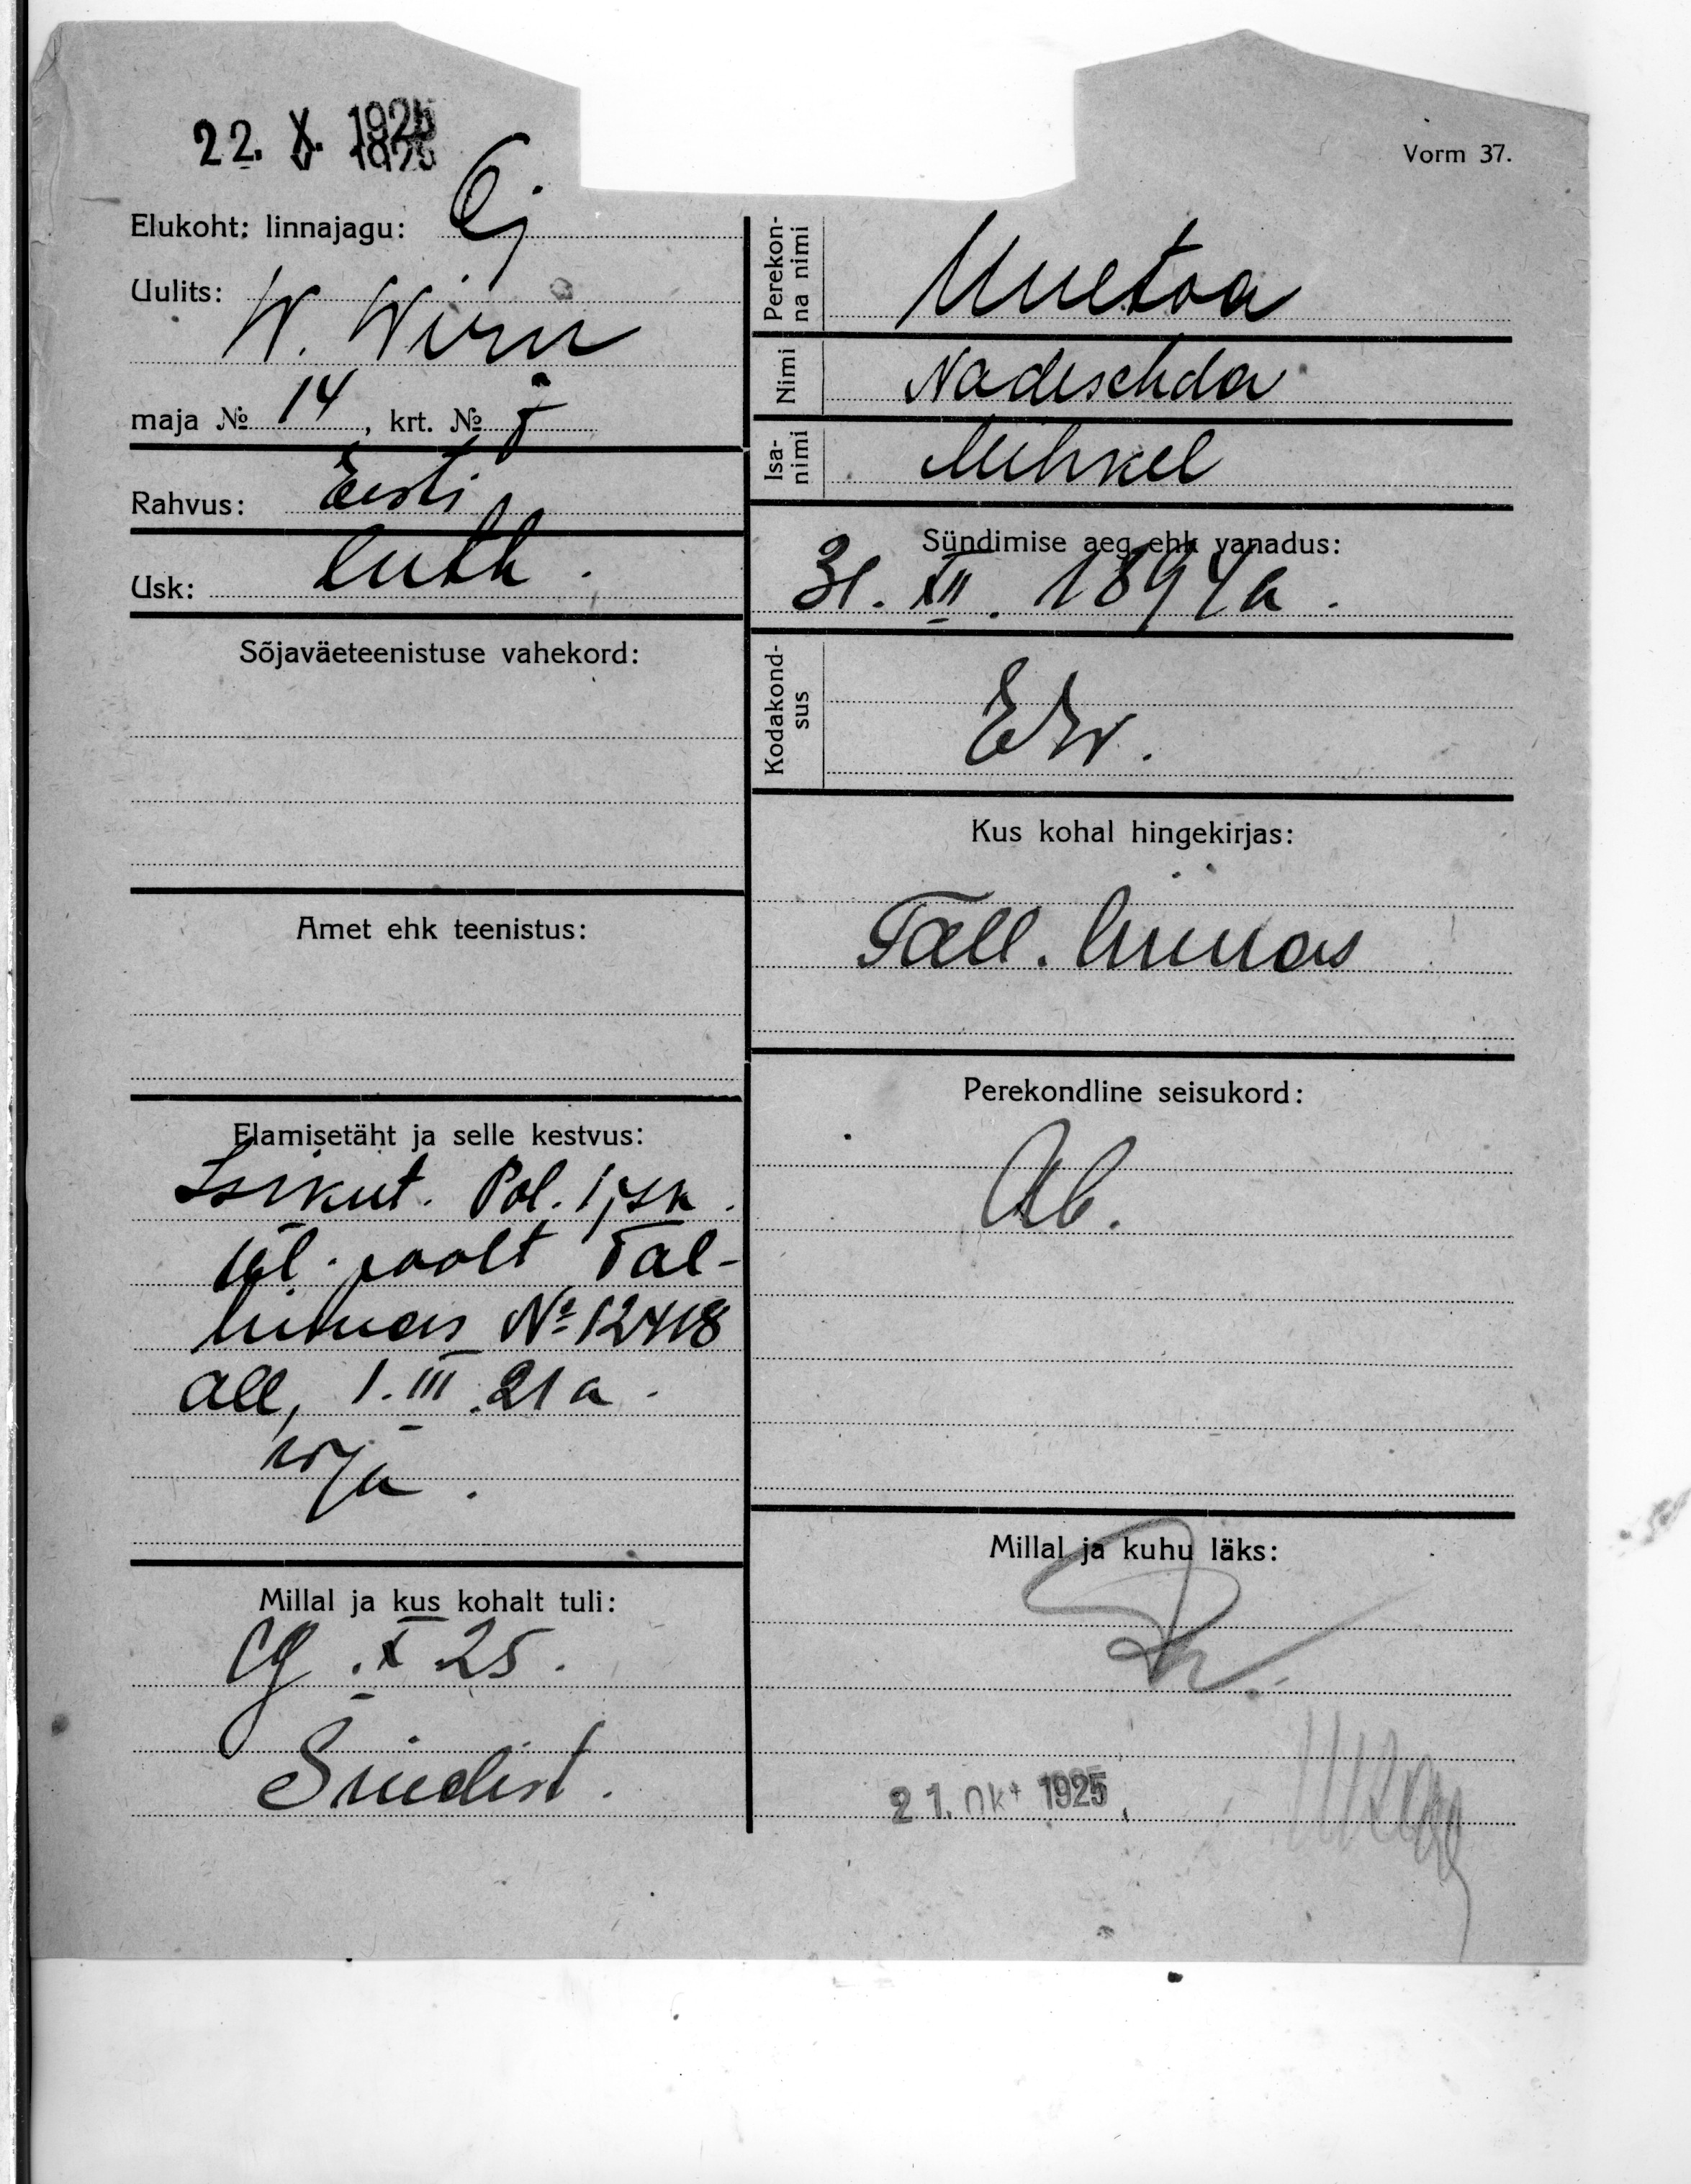 22. X. 1925
Vorm 37.
Elukoht: linnajagu:
Uulits:
W. Wiru
maja № 14, krt. №
Rahvus: Eesti
Usk: luth.
Sõjaväeteenistuse vahekord:
Amet ehk teenistus:
Elamisetäht ja selle kestvus:
Isikut. Pol. 1 jsk.
ül. poolt Tal-
linnas №
all, 1. III. 21 a.
Millal ja kus kohalt tuli:
19. X 25.
Perekon-
na nimi
Uuetoa
Nimi Nadeschda
Isa-
nimi
Mihkel
Sündimise aeg ehk vanadus:
31. XII. 1894 a.
Kodakond-
sus
Kus kohal hingekirjas:
Tall. linnas
Perekondline seisukord:
Ab.
Millal ja kuhu läks:
21. Okt 1925